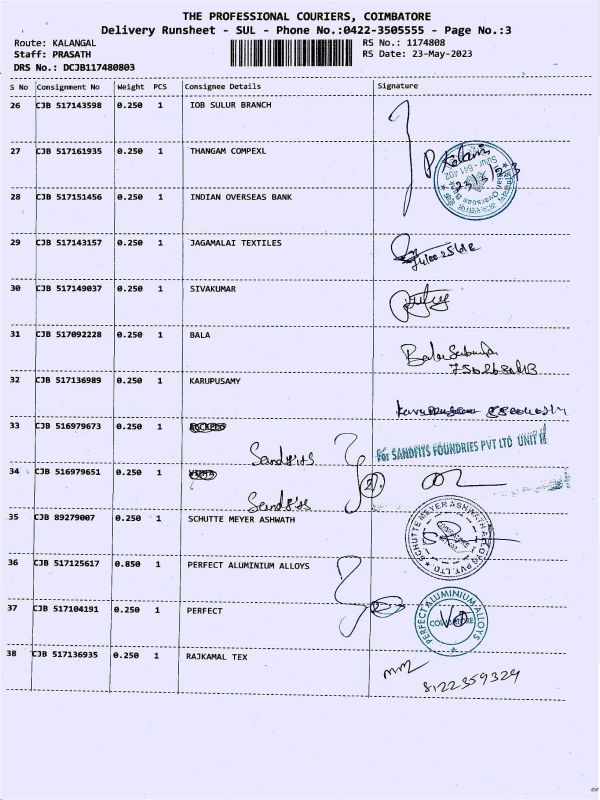 THE PROFESSIONAL COURIERS, COIMBATORE
Delivery Runsheet - SUL - Phone No.:0422-3505555 - Page No.:3
Route: KALANGAL RS No.: 1174808
Staff: PRASATH RS Date: 23-May-2023
DRS No.: DCJB117480803
S No Consignment No Weight PCS Consignee Details Signature
26 CJB 517143598 0.250 1 IOB SULUR BRANCH
27 CJB 517161935 0.250 1 THANGAM COMPEXL
28 CJB 517151456 0.250 1 INDIAN OVERSEAS BANK
29 CJB 517143157 0.250 1 JAGAMALAI TEXTILES
30 CJB 517149037 0.250 1 SIVAKUMAR
31 CJB 517092228 0.250 1 BALA
32 CJB 517136989 0.250 1 KARUPUSAMY
33 CJB 516979673 0.250 1
Sandfits
For SANDFITS FOUNDRIES PVT LTD UNIT II
34 CJB 516979651 0.250 1
Sandfits
2
35 CJB 89279007 0.250 1 SCHUTTE MEYER ASHWATH
SCHUTTE MEYER ASHWATH ALLOYS PVT. LTD.
36 CJB 517125617 0.850 1 PERFECT ALUMINIUM ALLOYS
37 CJB 517104191 0.250 1 PERFECT
2
PERFECT ALUMINIUM ALLOYS
COIMBATORE
38 CJB 517136935 0.250 1 RAJKAMAL TEX
8122359329